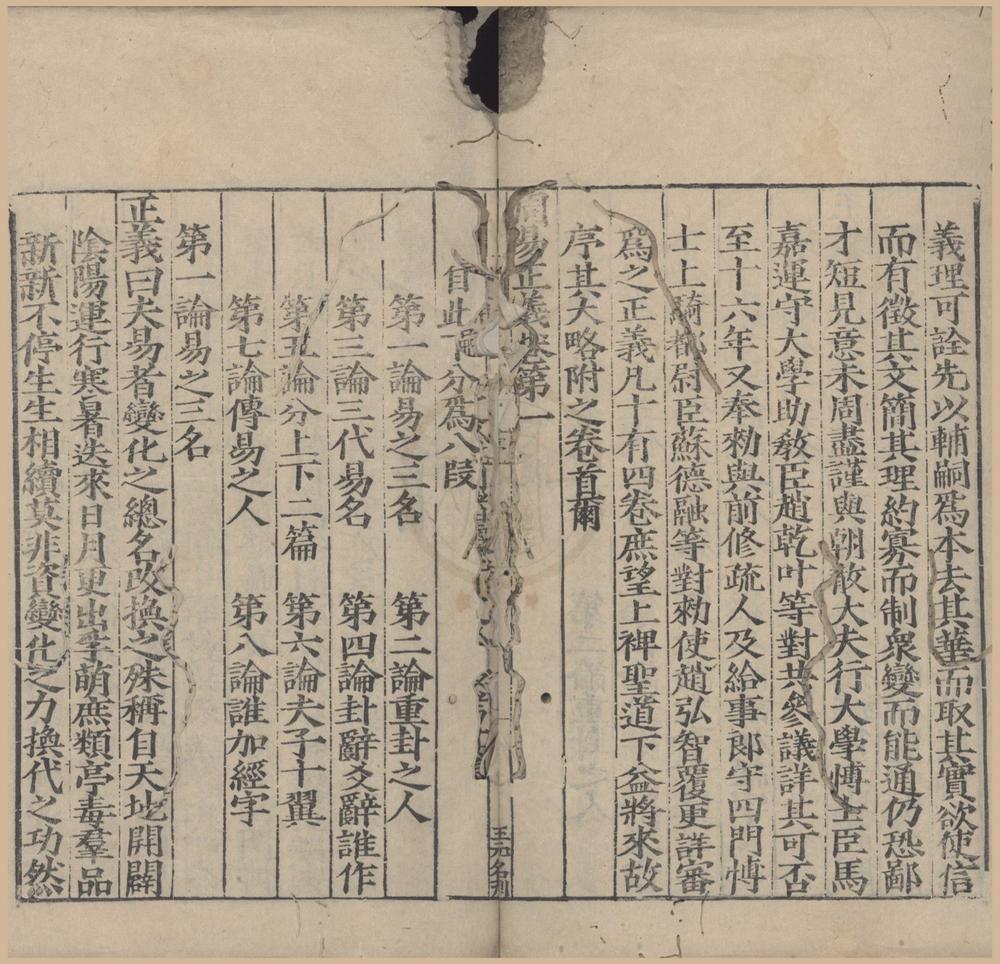 義理可詮先以輔嗣爲本去其華而取其實欲使信
而有徵其文簡其理約寡而制衆變而能通仍恐鄙
才短見意未周盡謹與朝散大夫行大學博士臣馬
嘉運守大學助敎臣趙乾叶等對共參議詳其可否
至十六年又奉勑與前修疏人及給事郎守四門博
士上騎都尉臣蘇德融等對勑使趙弘智覆更詳審
爲之正義凡十有四卷庶望上裨聖道下益將來故
序其大略附之卷首爾
周易正義卷第一
自此下分爲八段
第一論易之三名 第二論重卦之人
第三論三代易名 第四論卦辭爻辭誰作
第五論分上下二篇 第六論夫子十翼
第七論傳易之人 第八論誰加經字
第一論易之三名
正義曰夫易者變化之總名改換之殊稱自天地開闢
陰陽運行寒暑迭來日月更出孚萌庶類亭毒羣品
新新不停生生相續莫非資變化之力換代之功然